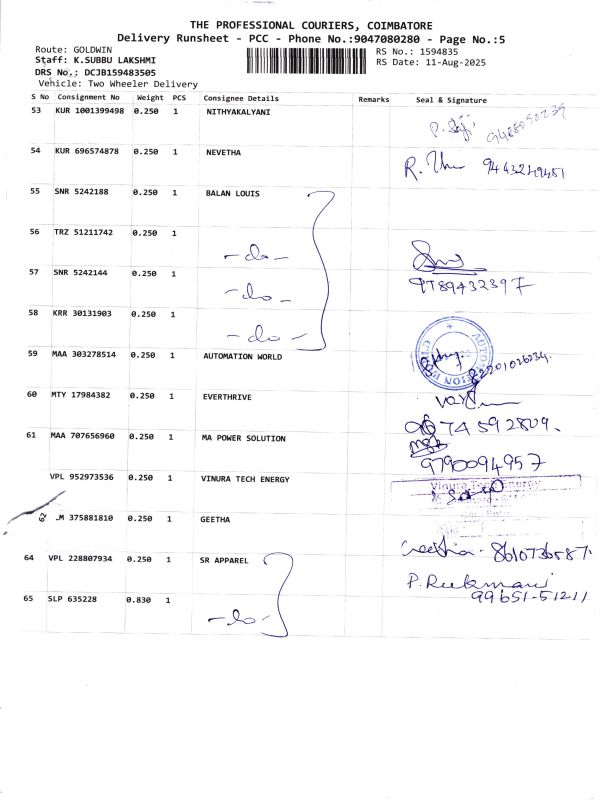 THE PROFESSIONAL COURIERS, COIMBATORE
Delivery Runsheet - PCC - Phone No.:9047080280 - Page No.:5
Route: GOLDWIN
Staff: K.SUBBU LAKSHMI
DRS No.: DCJB159483505
Vehicle: Two Wheeler Delivery
RS No.: 1594835
RS Date: 11-Aug-2025
S No Consignment No Weight PCS Consignee Details Remarks Seal & Signature
53 KUR 1001399498 0.250 1 NITHYAKALYANI
54 KUR 696574878 0.250 1 NEVETHA R.
55 SNR 5242188 0.250 1 BALAN LOUIS
56 TRZ 51211742 0.250 1 -do-
57 SNR 5242144 0.250 1 -do- 9789432397
58 KRR 30131903 0.250 1 -do-
59 MAA 303278514 0.250 1 AUTOMATION WORLD 82201026234.
60 MTY 17984382 0.250 1 EVERTHRIVE
61 MAA 707656960 0.250 1 MA POWER SOLUTION 9790094957
VPL 952973536 0.250 1 VINURA TECH ENERGY Vinura Tech Energy
62 LM 375881810 0.250 1 GEETHA Geetha - 8610736587.
64 VPL 228807934 0.250 1 SR APPAREL P. Rukmani
99651-51211
65 SLP 635228 0.830 1 -do-